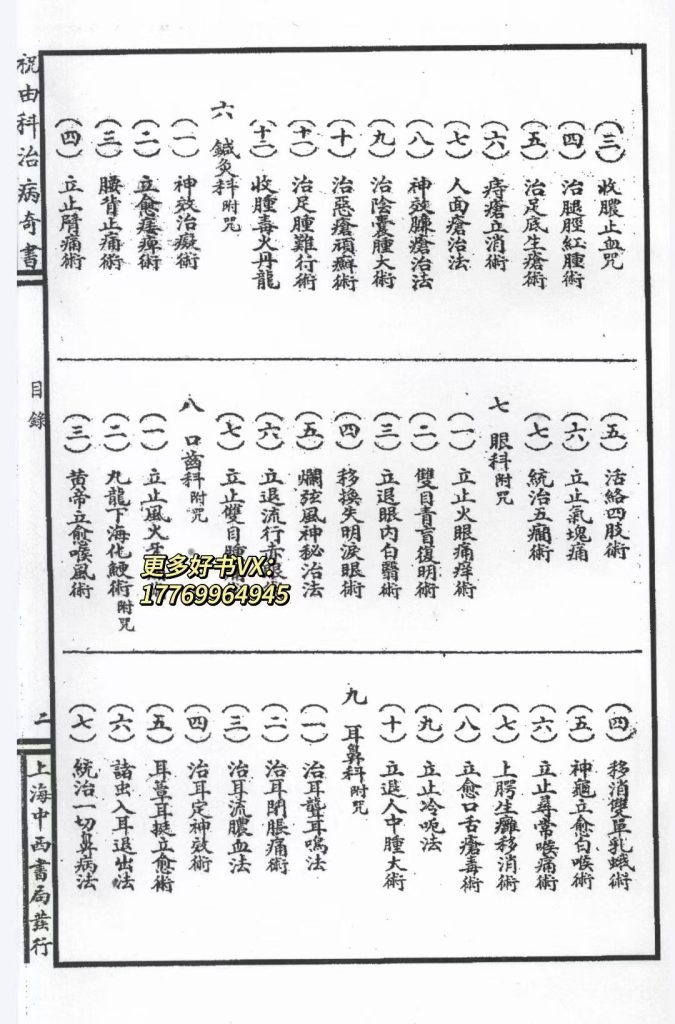 祝由科治病奇書
目錄
二
上海中西書局發行
(三)收膿止血咒
(四)治腿脛紅腫術
(五)治足底生瘡術
(六)痔瘡立消術
(七)人面瘡治法
(八)神效臁瘡治法
(九)治陰囊腫大術
(十)治惡瘡頑癬術
(十一)治足腫難行術
(十二)收腫毒火丹龍
六 鍼灸科附咒
(一)神效治癡術
(二)立愈痿痺術
(三)腰背止痛術
(四)立止臂痛術
(五)活絡四肢術
(六)立止氣塊痛
(七)統治五癎術
七 眼科附咒
(一)立止火眼痛痒術
(二)雙目青盲復明術
(三)立退眼內白翳術
(四)移換失明淚眼術
(五)爛弦風神秘治法
(六)立退流行赤
(七)立止雙目腫
八 口齒科附咒
(一)立止風火
(二)九龍下海化鯁術附咒
(三)黃帝立愈喉風術
(四)移消雙單乳蛾術
(五)神龜立愈白喉術
(六)立止尋常喉痛術
(七)上腭生癰移消術
(八)立愈口舌瘡毒術
(九)立止冷呃法
(十)立退人中腫大術
九 耳鼻科附咒
(一)治耳聾耳鳴法
(二)治耳閉脹痛術
(三)治耳流膿血法
(四)治耳定神效術
(五)耳蕈耳挺立愈術
(六)諸虫入耳退出法
(七)統治一切鼻病法
更多好书VX：
17769964945